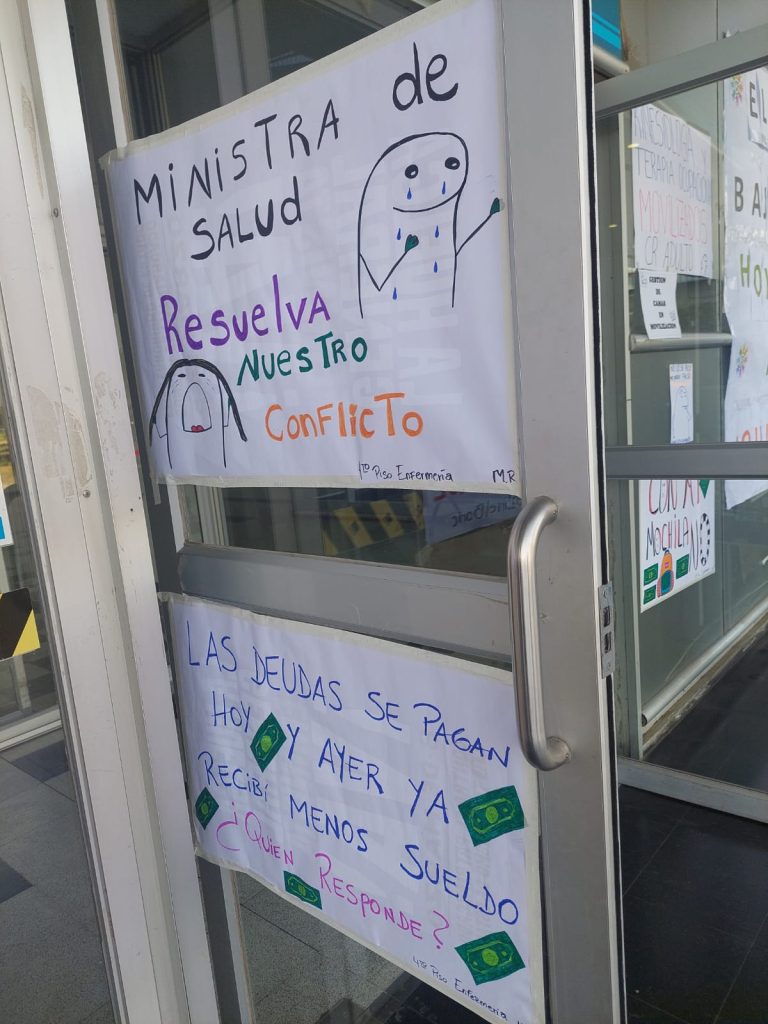 MINISTRA de
SALUD
Resuelva
NUESTRO
CONFLICTO
4TO Piso Enfermería M.R
LAS DEUDAS SE PAGAN
HOY Y AYER YA
RECIBÍ MENOS SUELDO
¿QUIEN RESPONDE?
4TO Piso Enfermería
KINESIOLOGIA Y
TERAPIA OCUPACIONAL
MOVILIZADOS
CR ADULTO
GESTION
DE
CAMAS EN
MOVILIZACION
BAJ
HOY
MOCHILA
NO